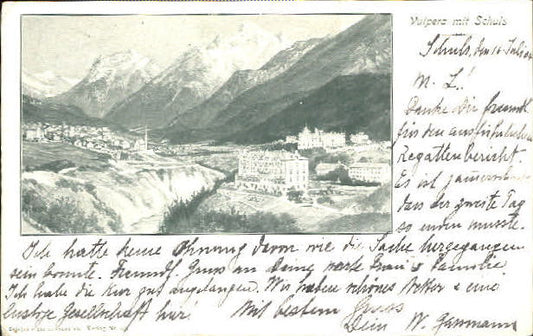 Vulpera mit Schuls
Schuls, den 10 Juli
M. L!
Danke Dir freundl.
für den ausführlichen
Regattenbericht.
Es ist jammer
dass der zweite Tag
so enden musste.
Ich hatte keine Ahnung davon wie die Sache hergegangen
sein konnte. Freundl. Gruss an Deine werte Frau & Familie
Ich habe die Kur gut angefangen. Wir haben schönes Wetter & eine
lustige Gesellschaft hier. Mit bestem Gruss
Dein W.